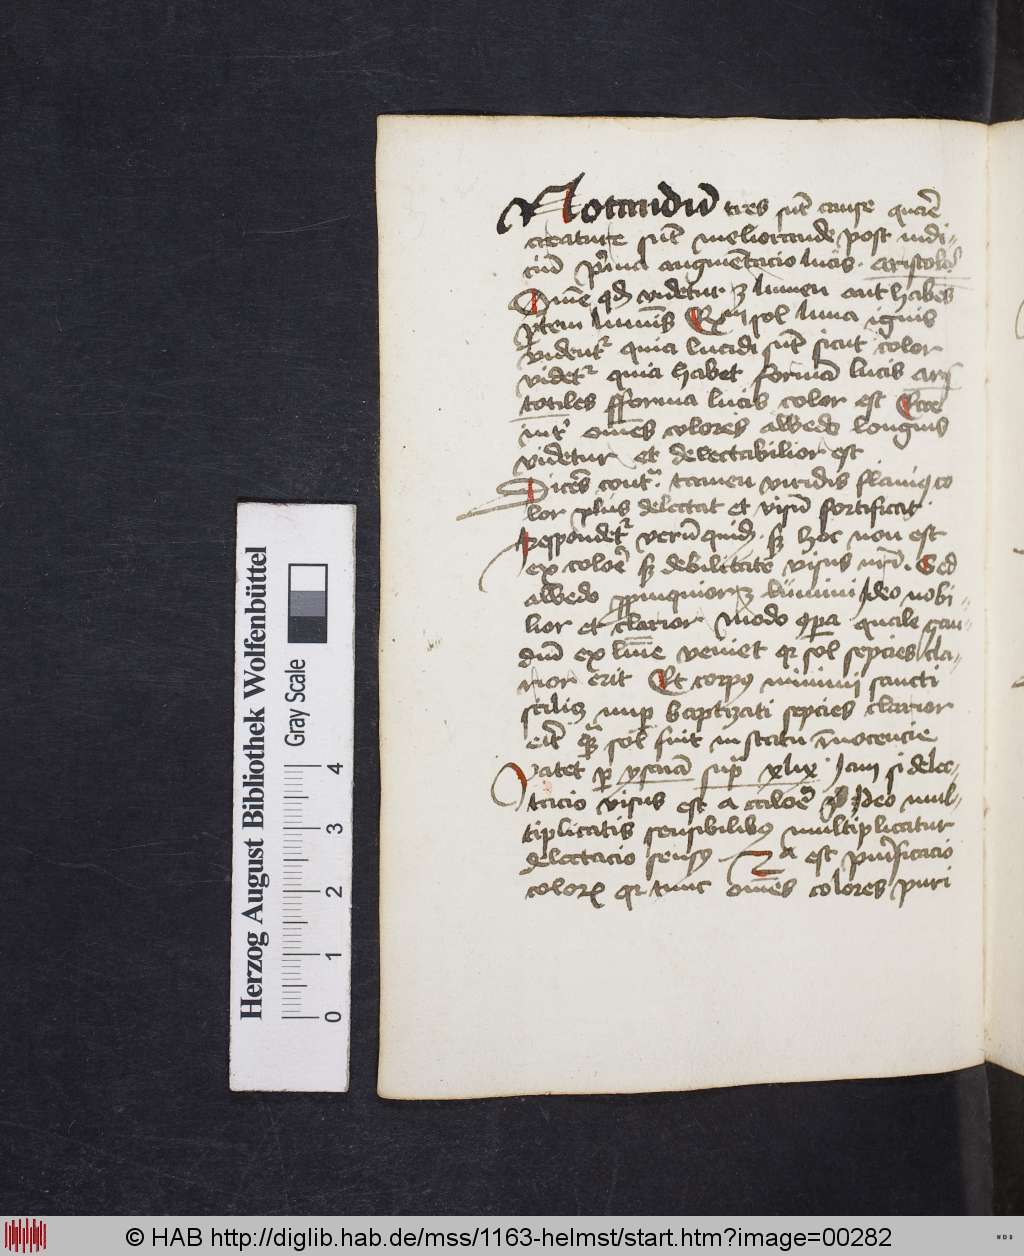 Notandū tres sūt cause quare
creature sūt meliorande post iudi-
ciū prima augmētacio lucis. aristotel'
Omē qd videtur ȝ lumen aut habēs
ptem luminis Exm sol luna ignis
vident' quia lucidi sūt sicut color
videt' quia habet formā lucis aris
totiles fforma lucis color est Ecce
int' omēs colores albedo longius
videtur et delectabilior est
Dicēs cont' tamen viridis flaniq co
lor plus delectat et visū fortificat
Respondet' verū quid. sȝ hoc non est
ex coloē sȝ debilitate visus nrī. Sed
albedo ppinquior ȝ lumini Ideo nobi-
lior et clarior Modo opa quale gau-
diū ex lumīe veniet qr sol sepcies cla-
rior erit Et corpus minimi sancti
scilicȝ nup baptizati sepcies clarior
erit qm sol fuit in statu inocencie
Patet p ysaiā supra xlix Jam si delec-
tacio visus est a caloē Ideo mul-
tiplicatis sensibilibus multiplicatur
delectacio sensus 2a est purificacio
color qr tunc omēs colores puri
Herzog August Bibliothek Wolfenbüttel
Gray Scale
0 1 2 3 4
© HAB http://diglib.hab.de/mss/1163-helmst/start.htm?image=00282